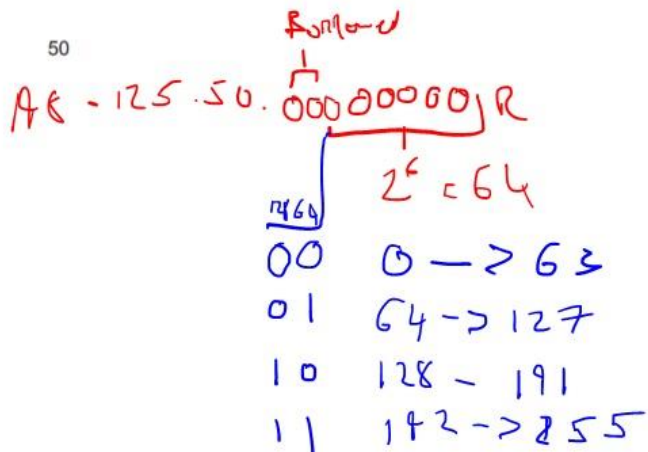 Borrowed
50
A8 - 125.50. 00000000 R
2^6 = 64
128 64
00 0 -> 63
01 64 -> 127
10 128 - 191
11 192 -> 255